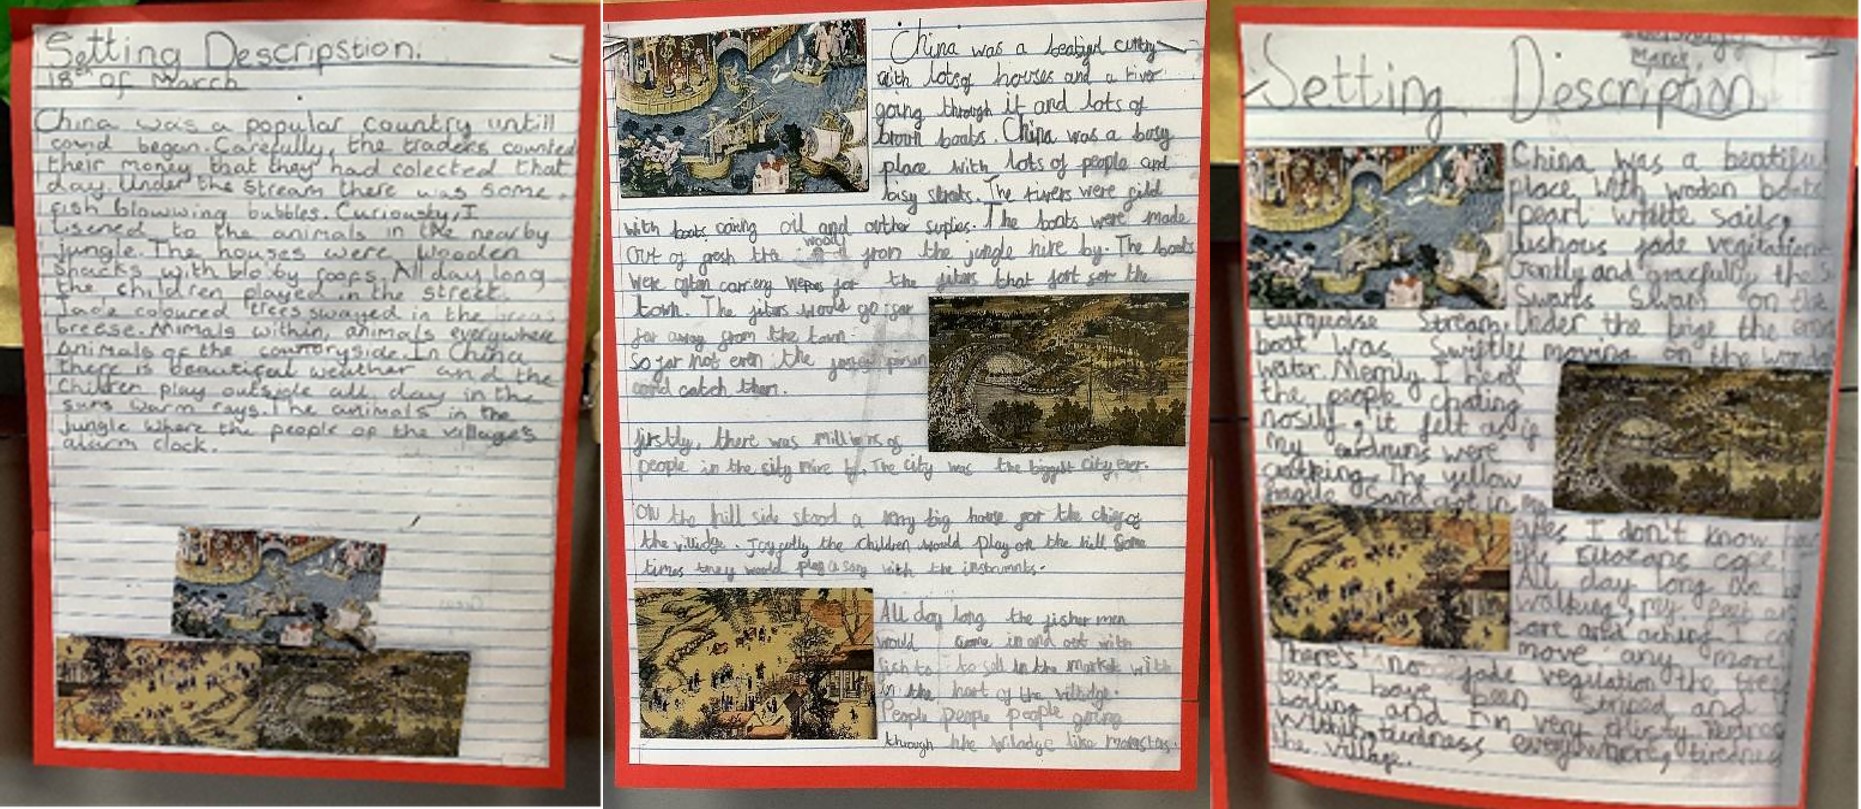 Setting Descripstion.
18th of March
China was a popular country untill
covid began. Carefully, the traders counted
their money that they had colected that
day. Under the stream there was some
fish blowwing bubbles. Curiousty, I
lisened to the animals in the nearby
jungle. The houses were wooden
shacks with blo by roofs. All day long
the children played in the street.
Jade coloured trees swayed in the breas
breese. Mimals within, animals everywhere
animals of the countryside. In China
there is beautiful weather and the
children play outside all day in the
suns warm rays. The animals in the
jungle where the people of the villages
alarm clock.
China was a beatigul cuntry
with lots of houses and a river
going through it and lots of
brown boats. China was a busy
place with lots of people and
bisy streats. The rivers were fild
with boats caring oil and outher suplies. The boats were made
out of gresh tre woody from the jungle hire by. The boats
were ofton carrieng wepos for the fiters that fort for the
town. The fiters would go far
far away from the town.
So far not even the person
could catch them.
firstly, there was millions of
people in the sity nire by. The city was the biggest city ever.
On the hill side stood a very big house for the chief of
the villidge. Joyfully the children would play on the hill some
times they would play a song with the instrumnts.
All day long the fisher men
would come in and out with
fish to to sell in the market with
in the hart of the villidge.
People people people going
through the viladge like monstas.
March,
Setting Description
China was a beatiful
place with woden boats
pearl white sails,
lushous jade vegitation
Gently and gracefully the
Swans Swam on the
turquoise stream. Under the brige the
boat was swiftly moving on the
water. Merrily I herd
the people chating
nosily, it felt as if
my eardruns were
craking. The yellow
fragile sand got in my
I don't know
the cope.
All day long
walking, my feet
sore and aching I
move any more
There's no jade vegitation the trees
have been striped and
boiling and I'm very thirsty.
Within, tiredness everywhere, tiredness
the village.